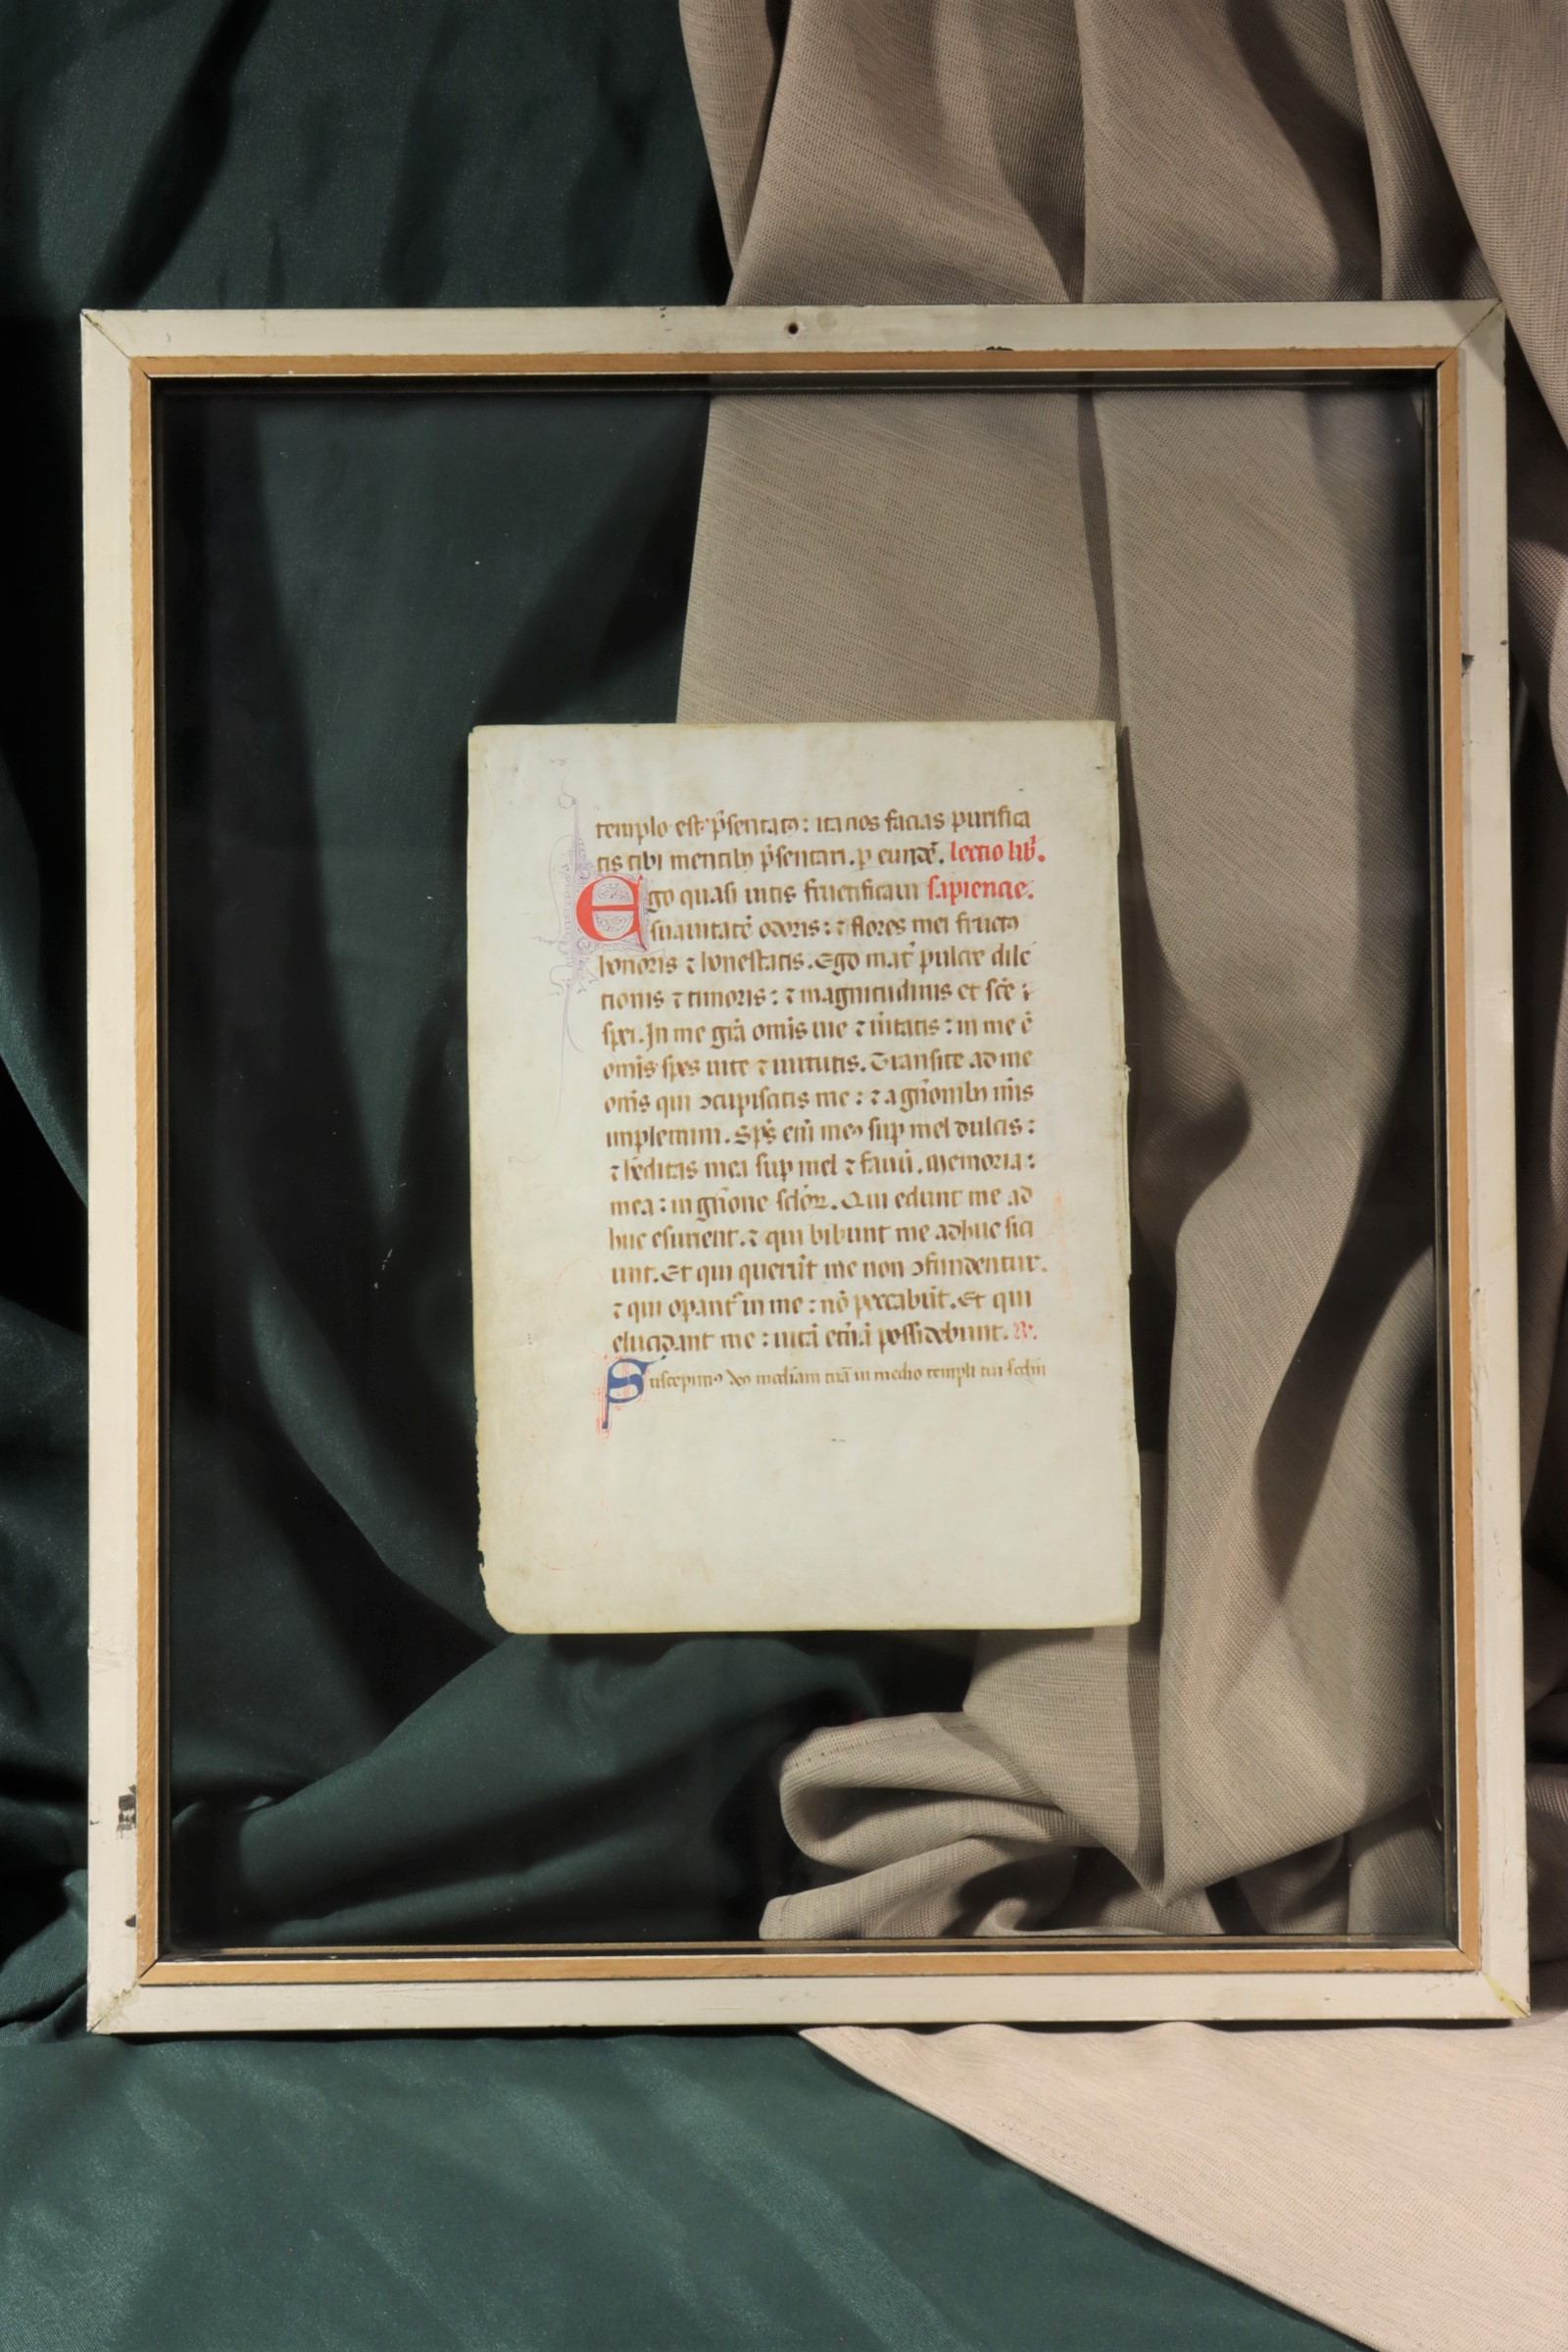 templo est p̄sentatꝰ: ita nos facias purifica
tis tibi mentibꝫ p̄sentari. ꝑ eundē. lectio lib̄.
Ego quasi uitis fructificaui sapiencie.
suauitatē odoris: ⁊ flores mei fructꝰ
honoris ⁊ honestatis. Ego mat̄ pulcre dile
ctionis ⁊ timoris: ⁊ magnitudinis et sc̄e:
spei. In me grā om̄is uie ⁊ u̇itatis: in me ē
om̄is spes uite ⁊ uirtutis. Transite ad me
om̄s qui ꝯcupiscitis me: ⁊ a gn̄ionibꝫ m̄is
implemini. Sp̄s eni̅ meꝰ suꝑ mel dulcis:
⁊ h̄editas mea suꝑ mel ⁊ fauū. Memoria:
mea: in gn̄one sc̄loꝝ. Qui edunt me ad
huc esurient. ⁊ qui bibunt me adhuc sici
unt. Et qui querūt me non ꝯfundentur.
⁊ qui oꝑant᷑ in me: nō peccabūt. Et qui
elucidant me: uitā et̄nā possidebunt. ℟.
Suscepimꝰ deꝰ mis̄diam tuā in medio templi tui sc̄d̄m